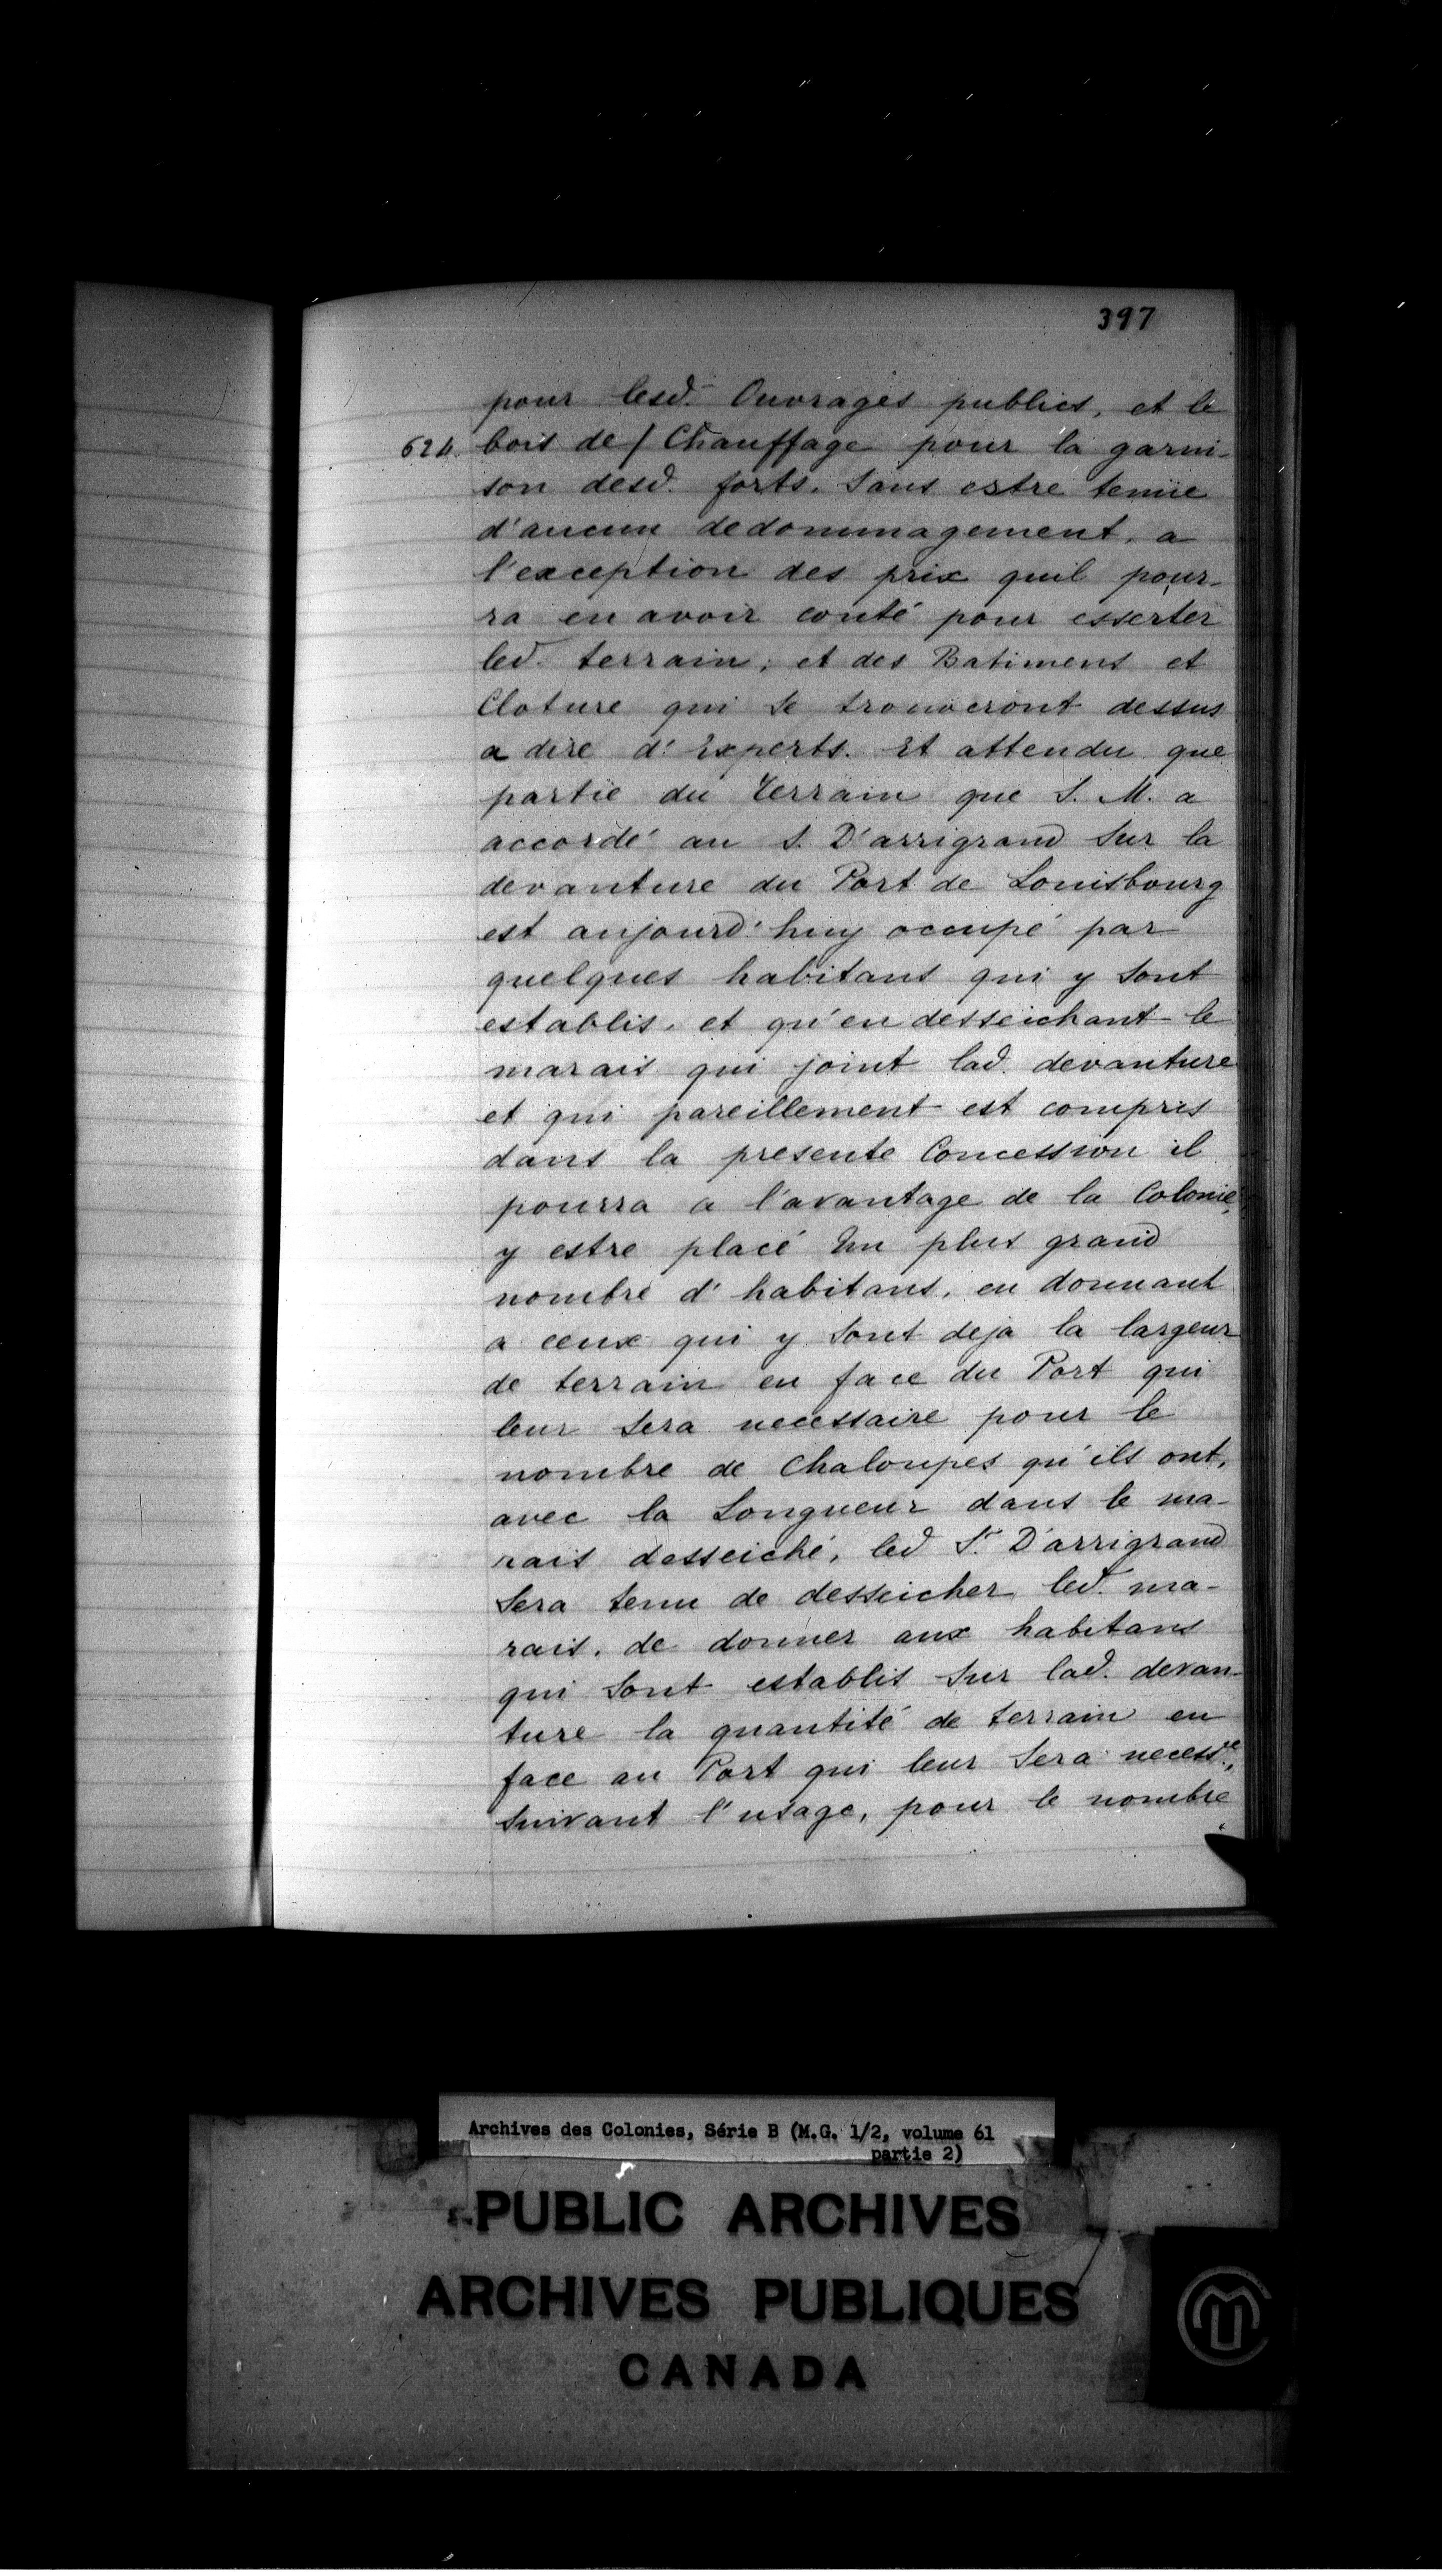 397
pour lesd. Ouvrages publics, et le
624. bois de / Chauffage pour la garni-
son desd. forts, sans estre tenüe
d'aucun dedommagement, a
l'exception des prix quil pour-
ra en avoir couté pour esserter
led. terrain, et des Batimens et
Cloture qui se trouveront dessus
a dire d'Experts. Et attendu que
partie du Terrain que S. M. a
accordé au S. D'arrigrand sur la
devanture du Port de Louisbourg
est aujourd'huy occupé par
quelques habitans qui y sont
establis, et qu'en desseichant le
marais qui joint lad. devanture
et qui pareillement est compris
dans la presente Concession il
pourra a l'avantage de la Colonie,
y estre placé un plus grand
nombre d'habitans, en donnant
a ceux qui y sont deja la largeur
de terrain en face du Port qui
leur sera necessaire pour le
nombre de Chaloupes qu'ils ont,
avec la Longueur dans le ma-
rais desseiché, led Sr. D'arrigrand
sera tenu de desseicher led. ma-
rais, de donner aux habitans
qui sont establis sur lad. devan-
ture la quantité de terrain en
face au Port qui leur sera necessre,
suivant l'usage, pour le nombre
Archives des Colonies, Série B (M.G. 1/2, volume 61
partie 2)
PUBLIC ARCHIVES
ARCHIVES PUBLIQUES
CANADA